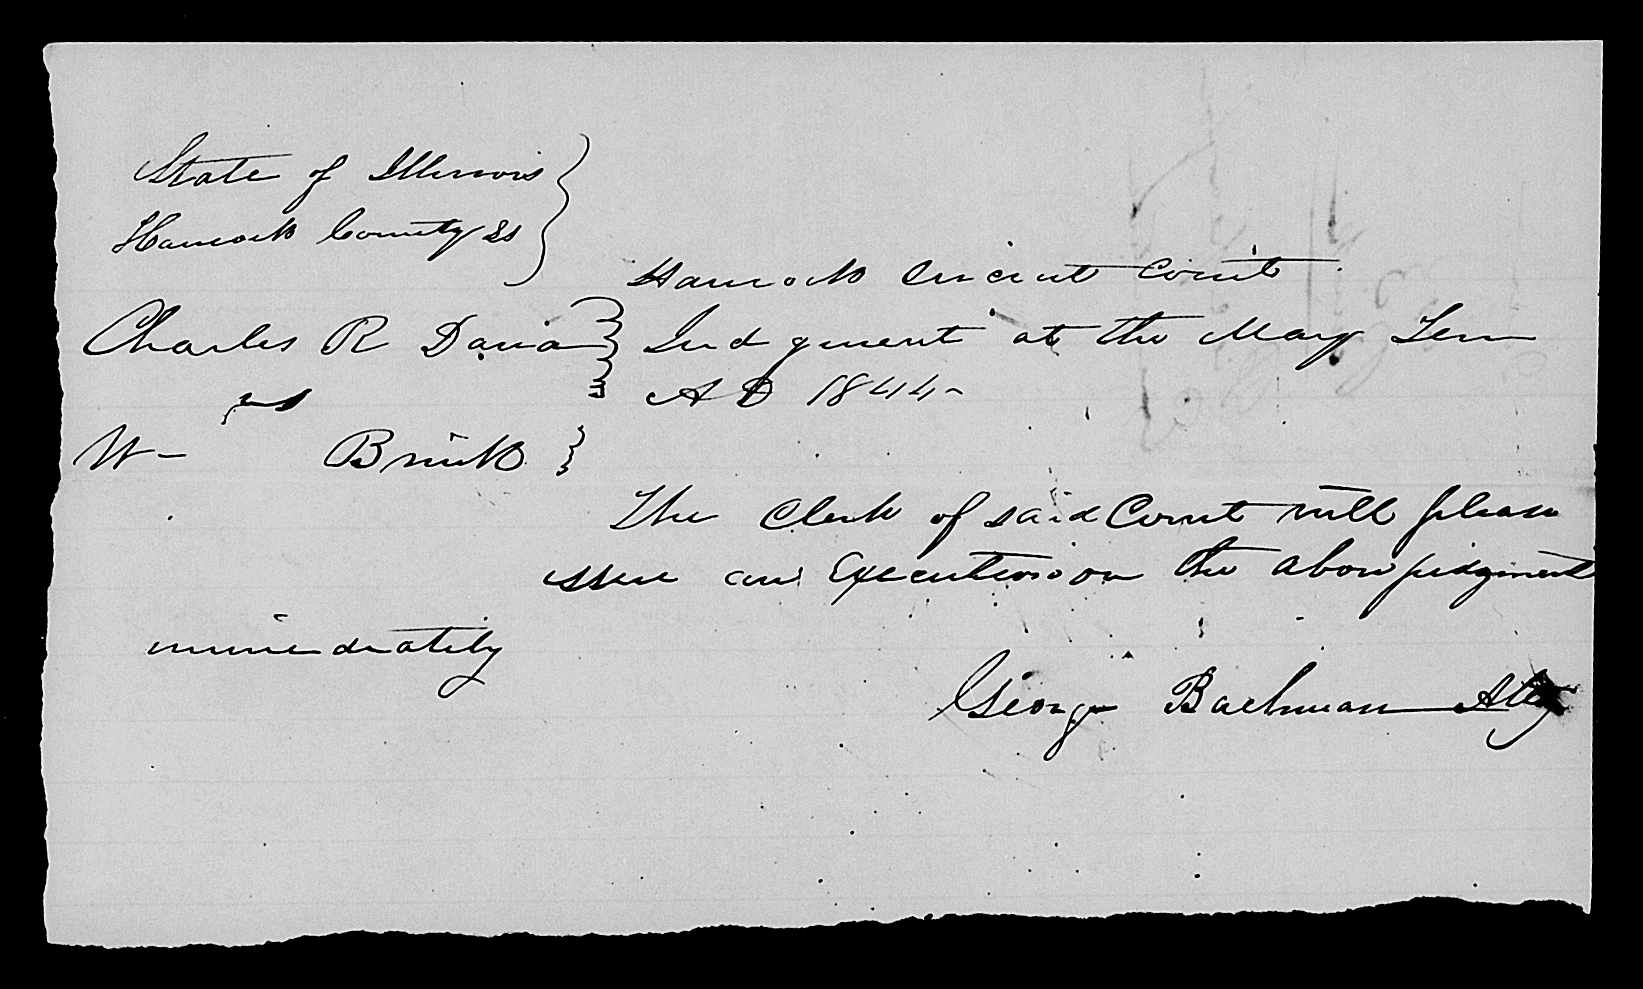 State of Illinois
Hancock County ss
Hancock Circuit Court
Charles R Dana
Judgment at the May Term
vs
AD 1844
Wm Brink
The Clerk of said Court will please
issue an Execution on the above judgment
immediately
George Bachman Atty